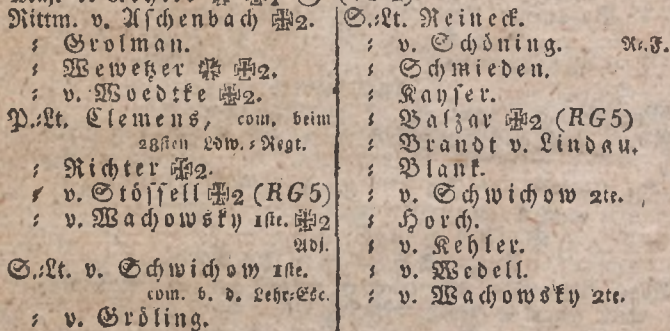 Rittm. v. Aschenbach ✠2.
: Grolman.
: Wewetzer ✠2.
: v. Woedtke ✠2.
P.:Lt. Clemens, com. beim
28sten Ldw.:Regt.
: Richter ✠2.
: v. Stössell ✠2 (RG5)
: v. Wachowsky 1ste. ✠2
Adj.
S.:Lt. v. Schwichow 1ste.
com. b. d. Lehr:Esc.
: v. Gröling.
S.:Lt. Reineck.
: v. Schöning. R:.F.
: Schmieden.
: Kayser.
: Balzar ✠2 (RG5)
: Brandt v. Lindau.
: Blank.
: v. Schwichow 2te.
: Horch.
: v. Kehler.
: v. Wedell.
: v. Wachowsky 2te.